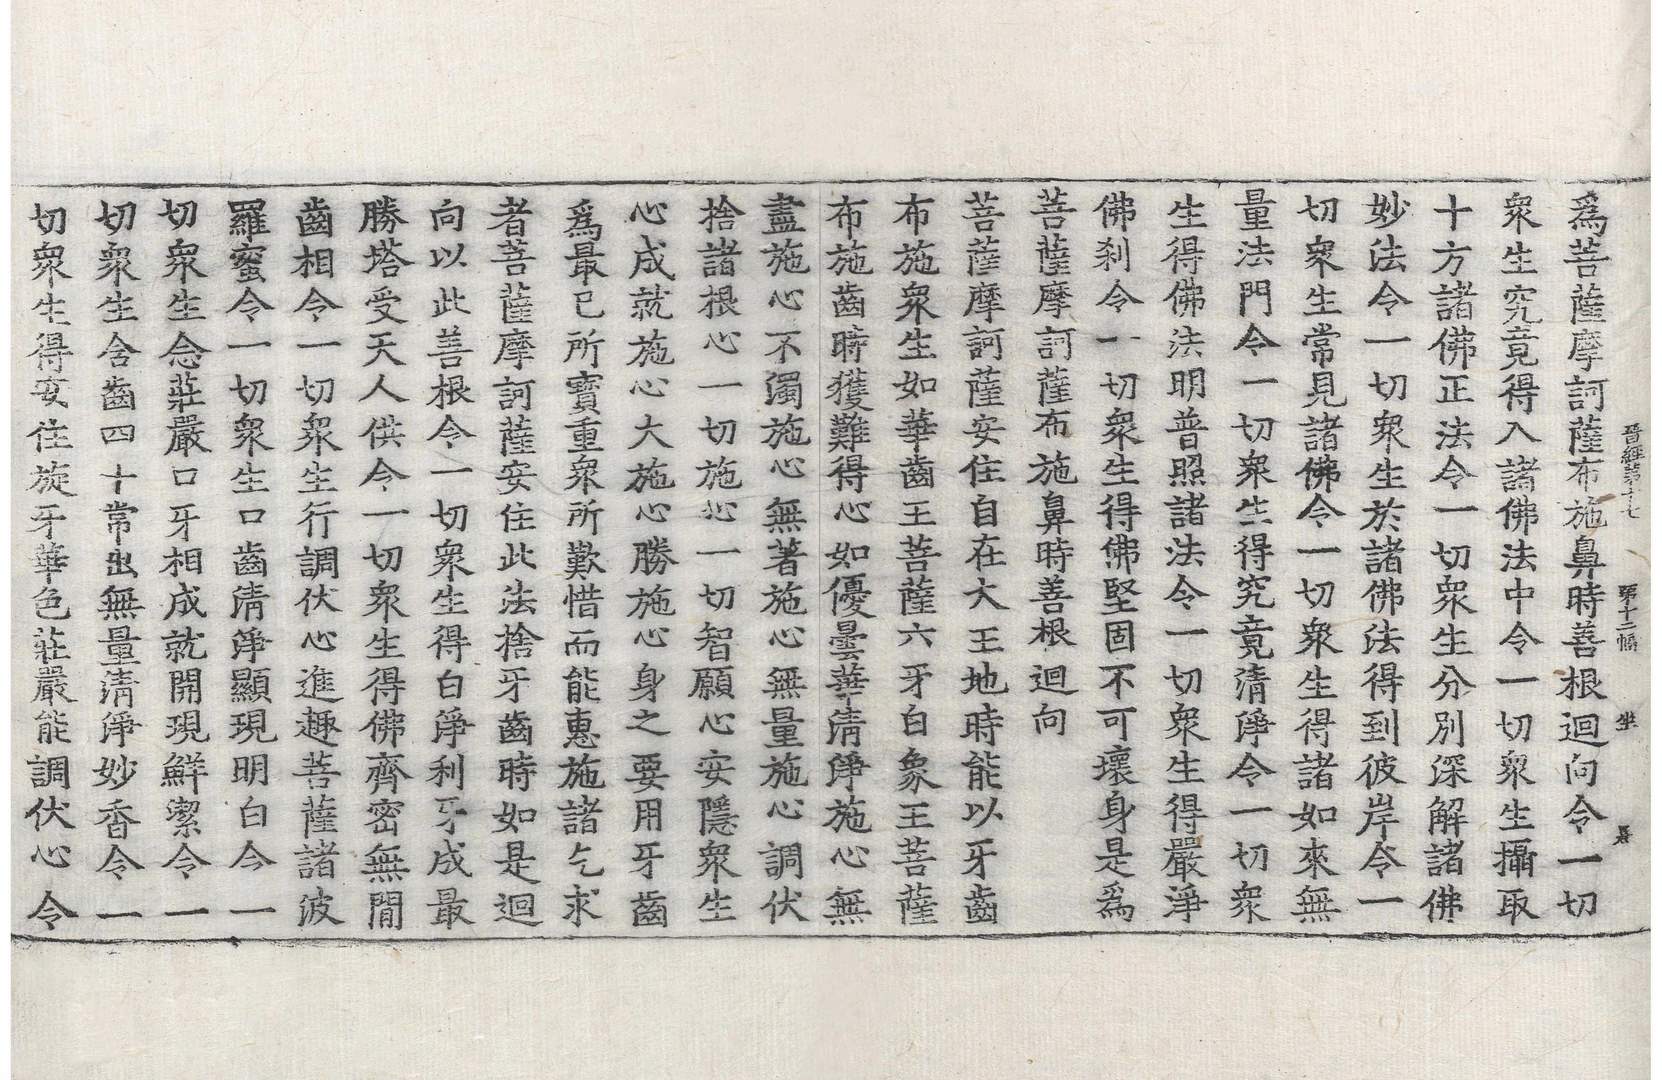 晉經第十七 第十二幅 坐
爲菩薩摩訶薩布施鼻時善根迴向令一切
衆生究竟得入諸佛法中令一切衆生攝取
十方諸佛正法令一切衆生分別深解諸佛
妙法令一切衆生於諸佛法得到彼岸令一
切衆生常見諸佛令一切衆生得諸如來無
量法門令一切衆生得究竟清淨令一切衆
生得佛法明普照諸法令一切衆生得嚴淨
佛刹令一切衆生得佛堅固不可壞身是爲
菩薩摩訶薩布施鼻時善根迴向
菩薩摩訶薩安住自在大王地時能以牙齒
布施衆生如華齒王菩薩六牙白象王菩薩
布施齒時獲難得心如優曇華清淨施心無
盡施心不濁施心無著施心無量施心調伏
捨諸根心一切施心一切智願心安隱衆生
心成就施心大施心勝施心身之要用牙齒
爲最已所寶重衆所歎惜而能惠施諸乞求
者菩薩摩訶薩安住此法捨牙齒時如是迴
向以此善根令一切衆生得白淨利牙成最
勝塔受天人供令一切衆生得佛齊密無間
齒相令一切衆生行調伏心進趣菩薩諸波
羅蜜令一切衆生口齒清淨顯現明白令一
切衆生念莊嚴口牙相成就開現鮮潔令一
切衆生含齒四十常出無量清淨妙香令一
切衆生得安住旋牙華色莊嚴能調伏心令